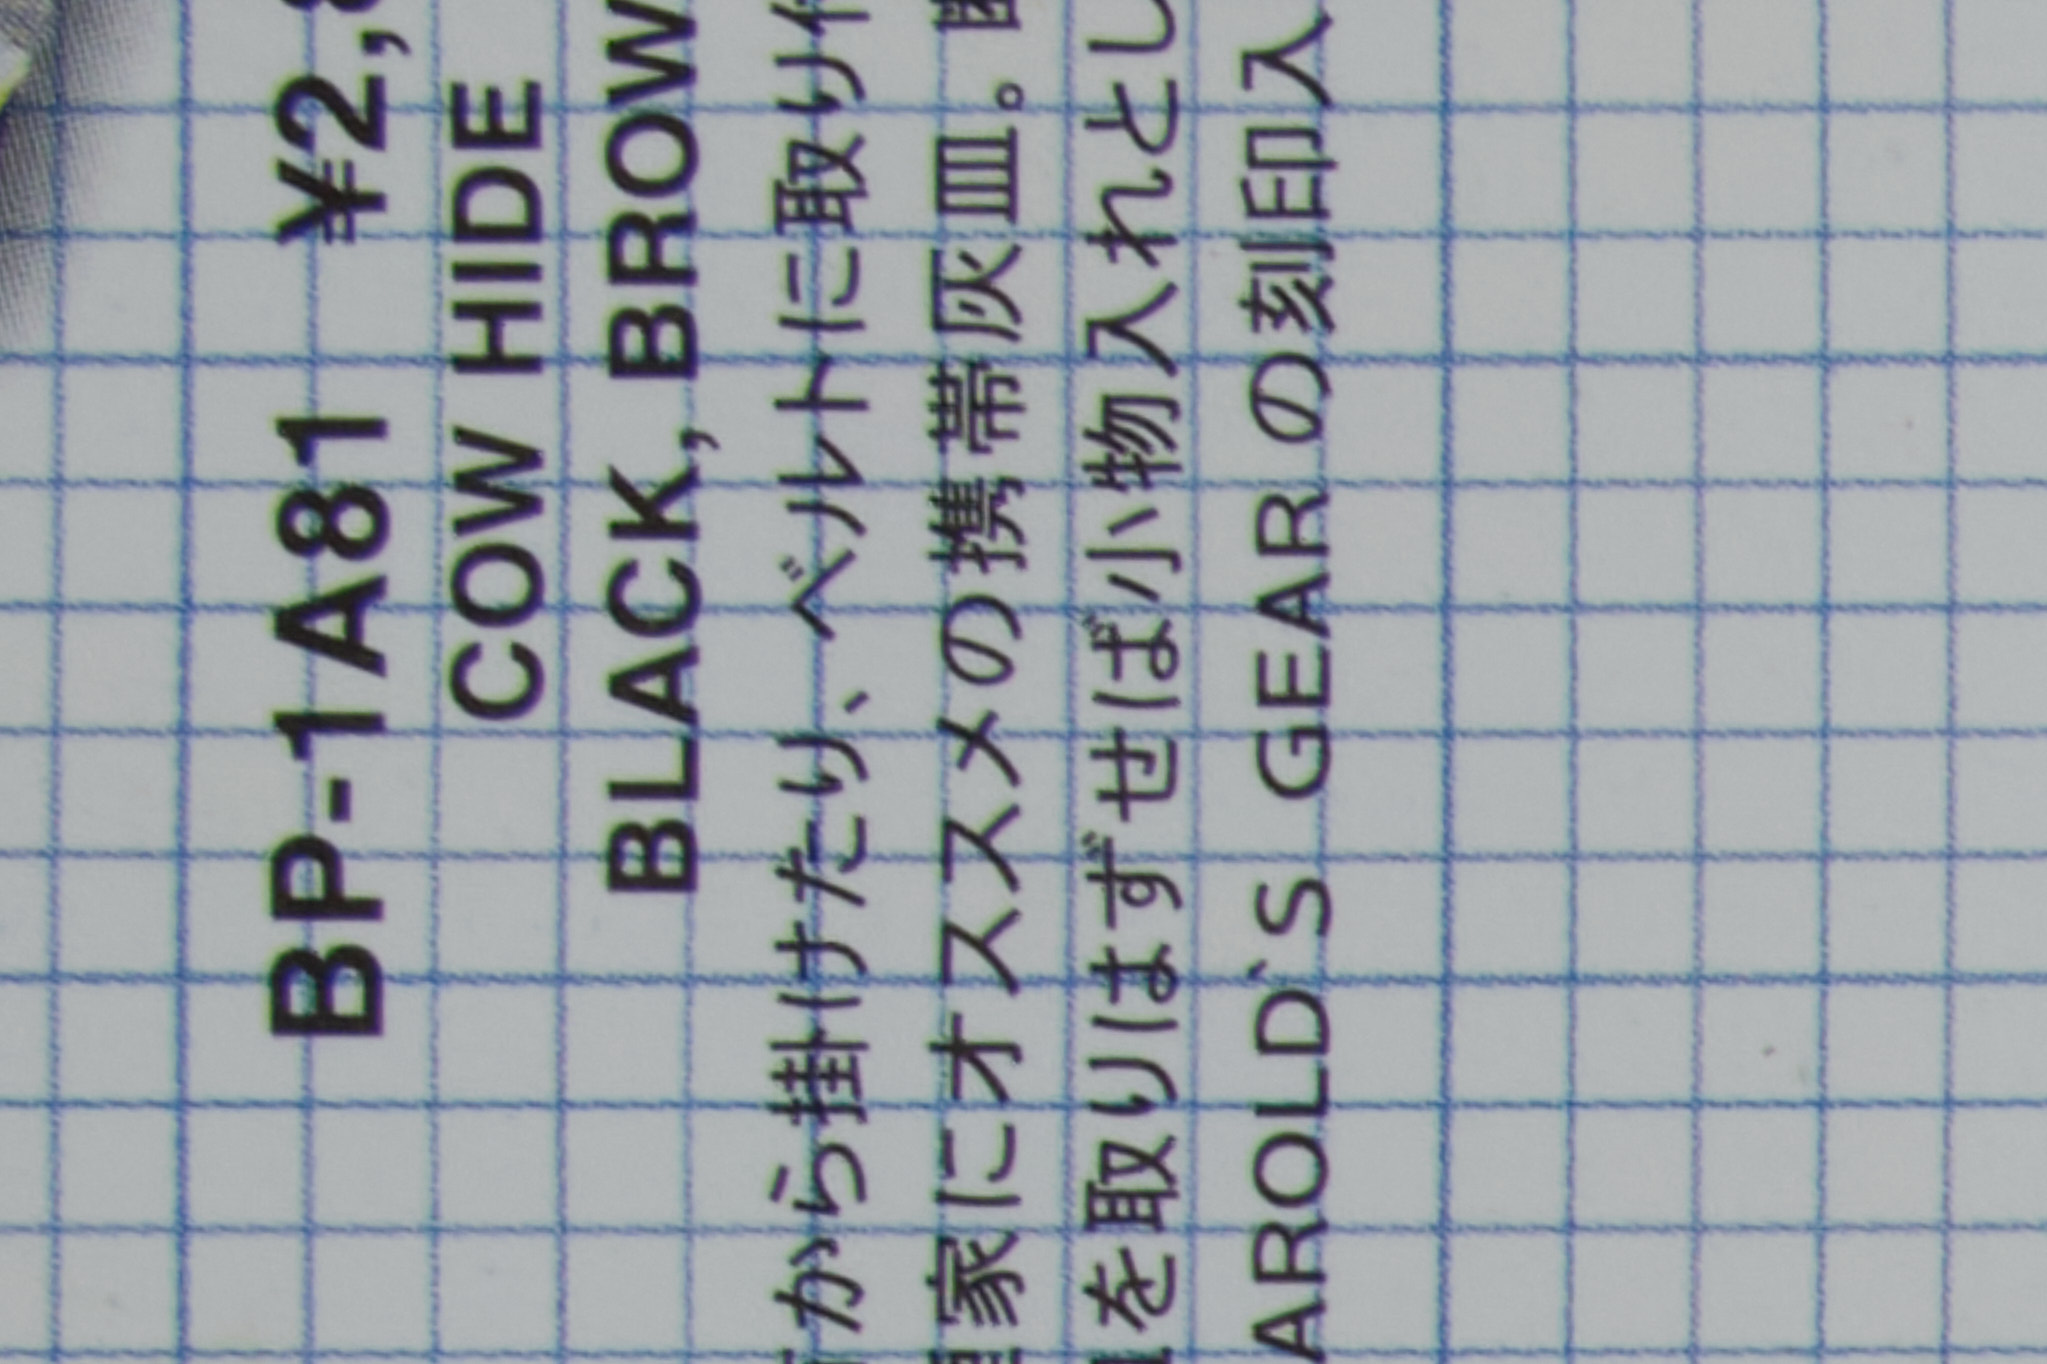 BP-1A81 ¥2,
COW HIDE
BLACK, BROW
から掛けたり、ベルトに取り付
家にオススメの携帯灰皿。
を取りはずせば小物入れとし
AROLD`S GEARの刻印入